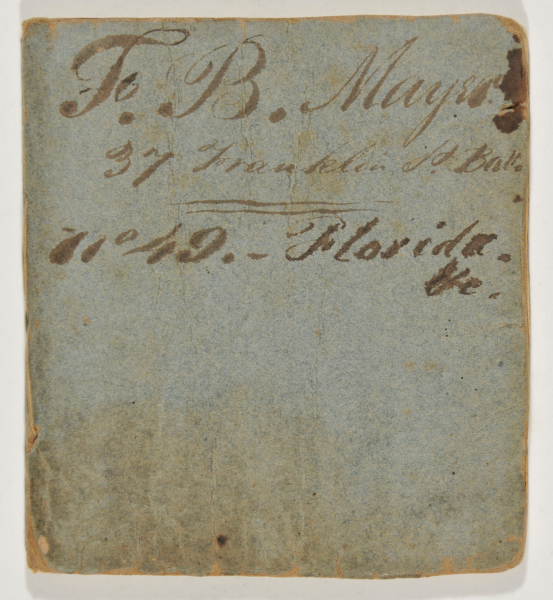 F. B. Mayer.
37 Franklin St. Balt.
No 49. - Florida.
&c.